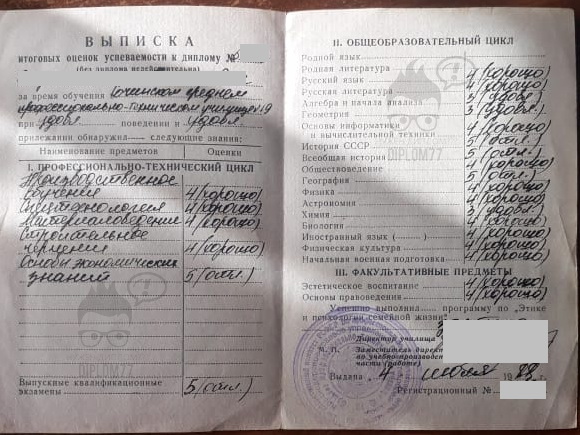 ВЫПИСКА
итоговых оценок успеваемости к диплому №
(без диплома недействительна)
за время обучения Сочинском среднем
профессионально-техническом училище №19
при удовл. поведении и удовл.
прилежании обнаружил — следующие знания:
Наименование предметов Оценки
I. ПРОФЕССИОНАЛЬНО-ТЕХНИЧЕСКИЙ ЦИКЛ
Производственное
обучение 4 (хорошо)
Спецтехнология 4 (хорошо)
Материаловедение 4 (хорошо)
Строительное
черчение 4 (хорошо)
Основы экономических
знаний 5 (отл.)
Выпускные квалификационные
экзамены 5 (отл.)
DIPLOM77
II. ОБЩЕОБРАЗОВАТЕЛЬНЫЙ ЦИКЛ
Родной язык
Родная литература
Русский язык 4 (хорошо)
Русская литература 4 (хорошо)
Алгебра и начала анализа 3 (удовл.)
Геометрия 3 (удовл.)
Основы информатики
и вычислительной техники 4 (хорошо)
История СССР 5 (отл.)
Всеобщая история 5 (отл.)
Обществоведение 4 (хорошо)
География 5 (отл.)
Физика 4 (хорошо)
Астрономия 4 (хорошо)
Химия 3 (удовл.)
Биология 4 (хорошо)
Иностранный язык (——) 4 (хорошо)
Физическая культура 4 (хорошо)
Начальная военная подготовка 4 (хорошо)
DIPLOM77
III. ФАКУЛЬТАТИВНЫЕ ПРЕДМЕТЫ
Эстетическое воспитание 4 (хорошо)
Основы правоведения 4 (хорошо)
Успешно выполнила программу по „Этике
и психологии семейной жизни"
Директор училища
М. П. Заместитель
по учебно-производ
части (работе)
Выдана 4 июля 1989 г.
Регистрационный №